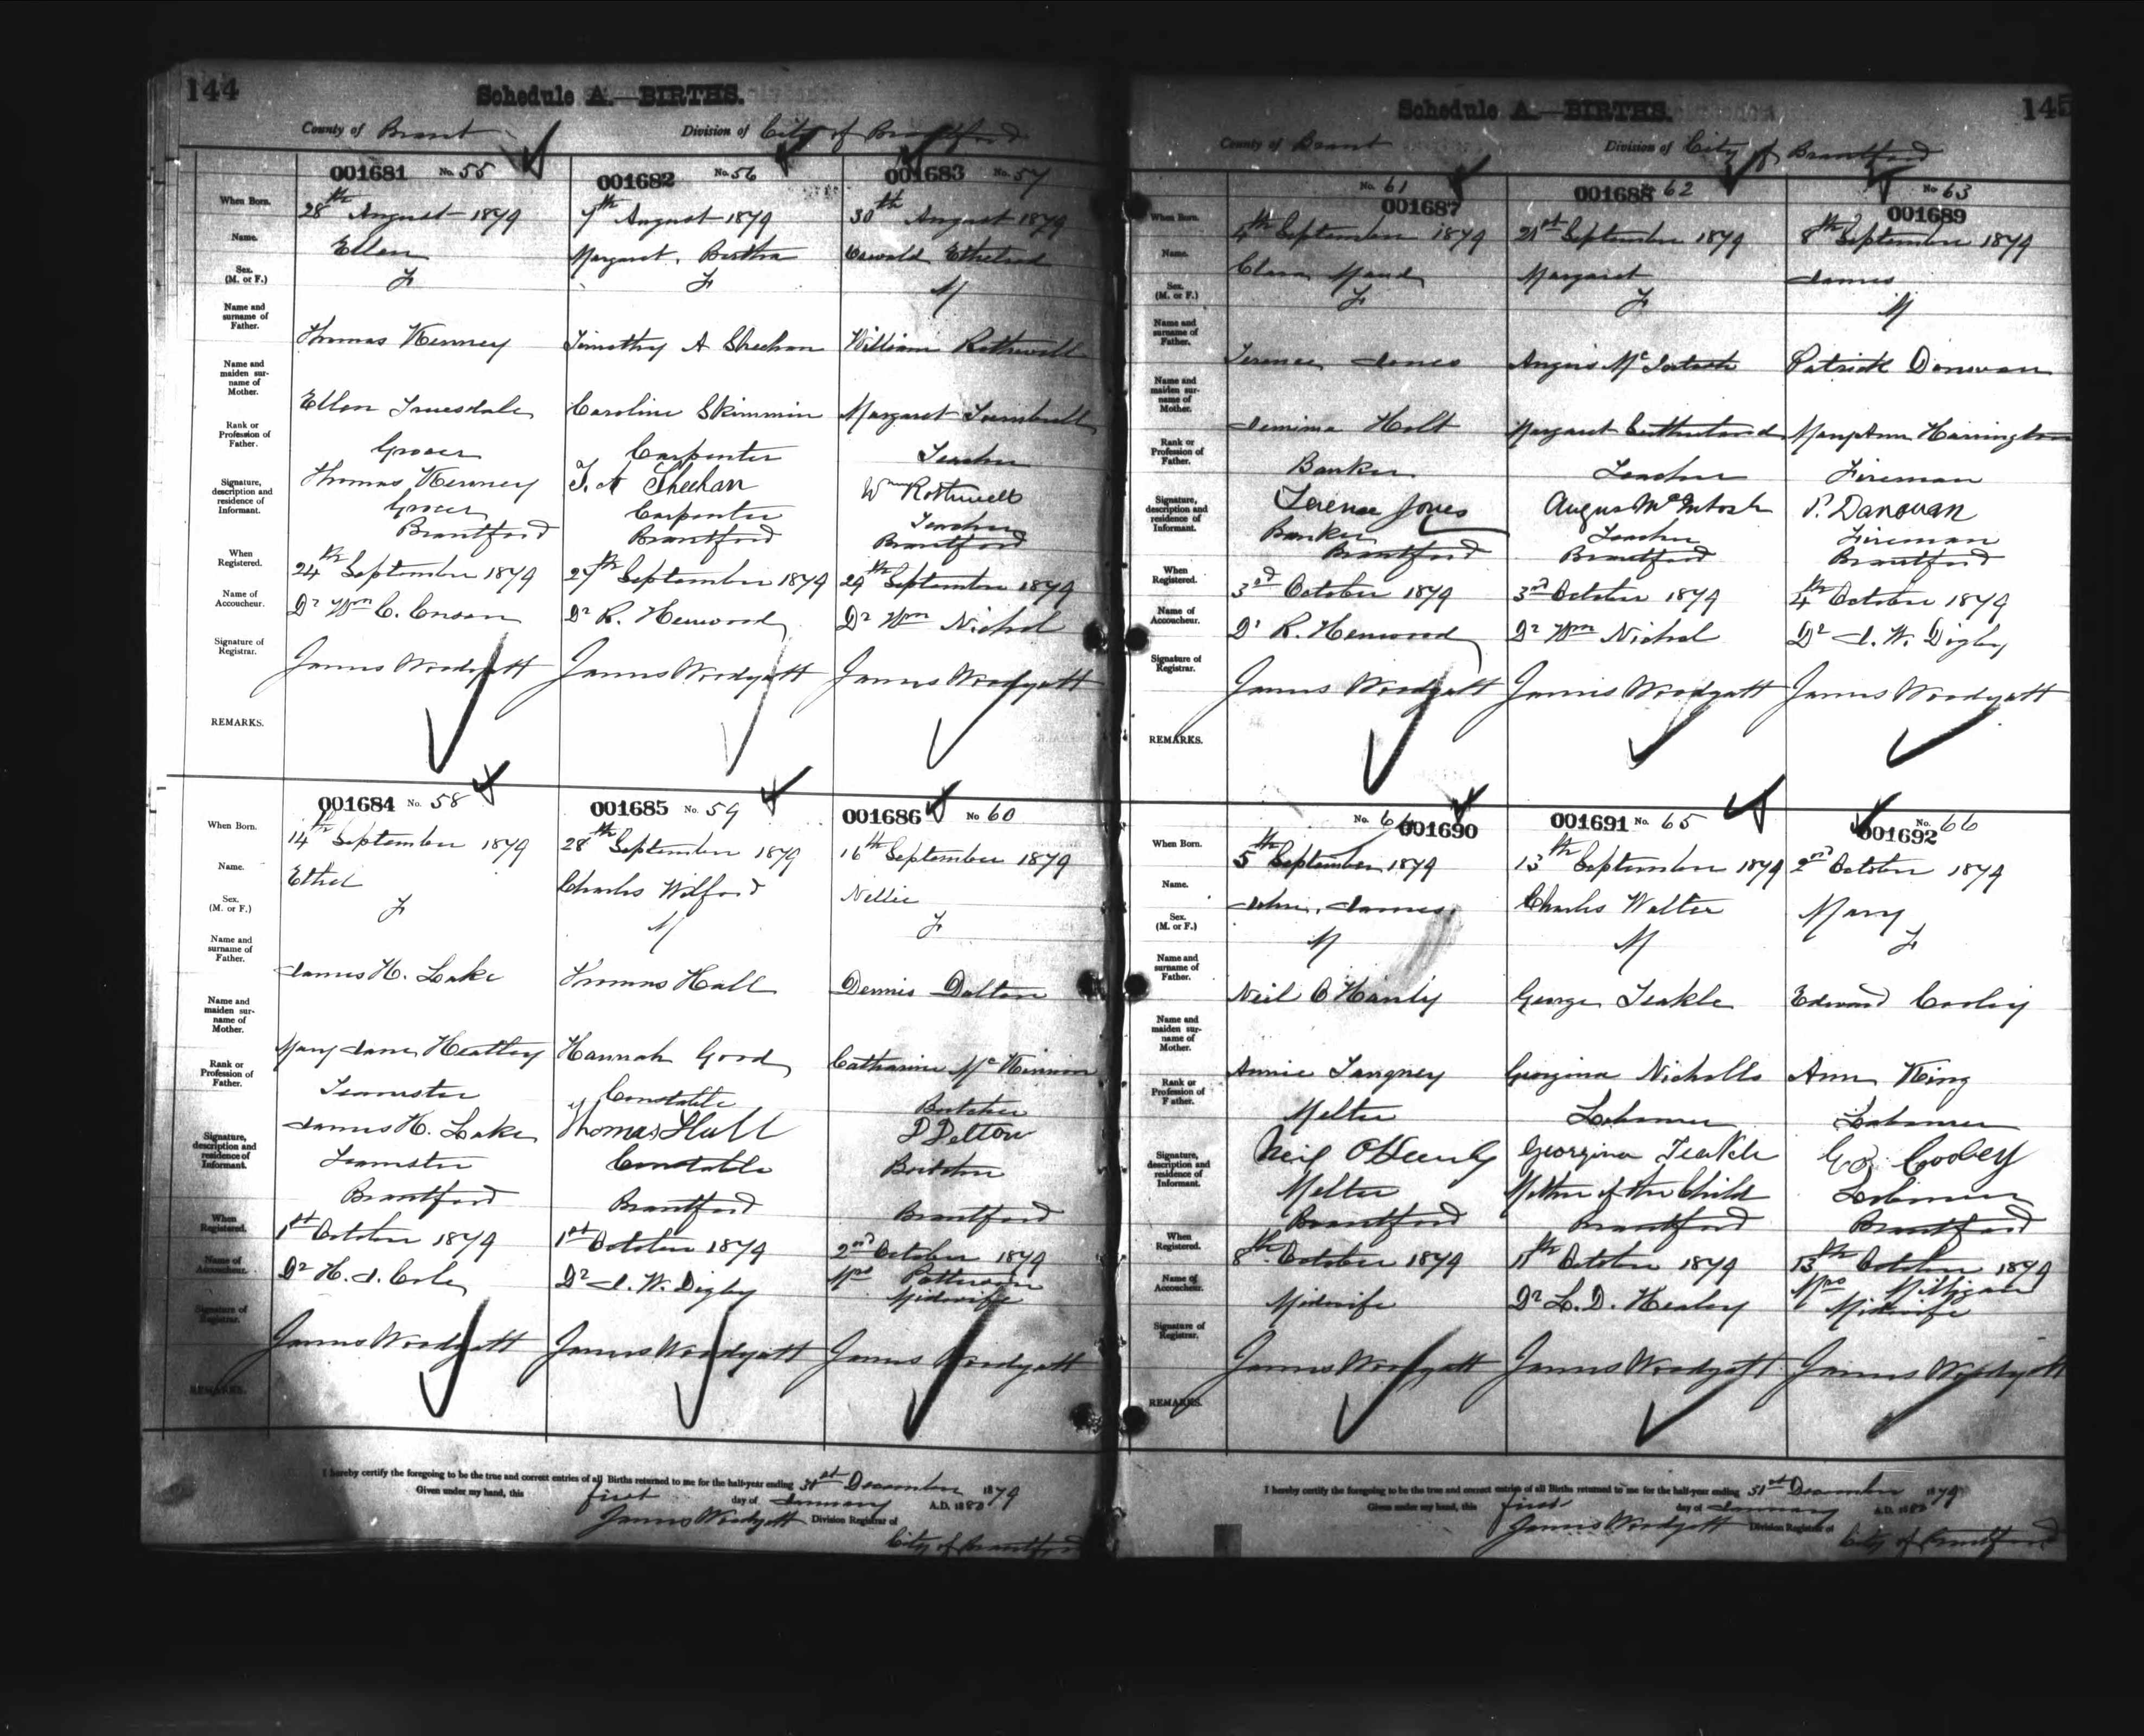 144
Schedule A.—BIRTHS.
County of Brant Division of City of Brantford
001681 No. 55
When Born. 28th August 1879
Name. Ellen
Sex. (M. or F.) F
Name and surname of Father. Thomas Kenney
Name and maiden surname of Mother. Ellen Truesdale
Rank or Profession of Father. Grocer
Signature, description and residence of Informant. Thomas Kenney
Grocer
Brantford
When Registered. 24th September 1879
Name of Accoucheur. Dr Wm C.
Signature of Registrar. James Woodyatt
REMARKS.
001682 No. 56
7th August 1879
Margaret Bertha
F
Timothy A Sheehan
Caroline Skimmin
Carpenter
T. A Sheehan
Carpenter
Brantford
27th September 1879
Dr R. Henwood
James Woodyatt
001683 No. 57
30th August 1879
Oswald Ethelred
M
William Rothwell
Margaret Turnbull
Teacher
Wm Rothwell
Teacher
Brantford
29th September 1879
Dr Wm Nichol
James Woodyatt
001684 No. 58
When Born. 14th September 1879
Name. Ethel
Sex. (M. or F.) F
Name and surname of Father. James H. Lake
Name and maiden surname of Mother. Mary Jane Heatley
Rank or Profession of Father. Teamster
Signature, description and residence of Informant. James H. Lake
Teamster
Brantford
When Registered. 1st October 1879
Name of Accoucheur. Dr H. J. Cole
Signature of Registrar. James Woodyatt
REMARKS.
001685 No. 59
28th September 1879
Charles Wilford
M
Thomas Hall
Hannah Good
Constable
Thomas Hall
Constable
Brantford
1st October 1879
Dr J. W. Digby
James Woodyatt
001686 No 60
16th September 1879
Nellie
F
Dennis Dalton
Catharine McKinnon
Butcher
D Delton
Butcher
Brantford
2nd October 1879
Mrs Patterson
Midwife
James Woodyatt
I hereby certify the foregoing to be the true and correct entries of all Births returned to me for the half-year ending 31st December 1879
Given under my hand, this first day of January A.D. 1880
James Woodyatt Division Registrar of
City of Brantford
145
Schedule A.—BIRTHS.
County of Brant Division of City of Brantford
No. 61
001687
When Born. 4th September 1879
Name. Clara Maud
Sex. (M. or F.) F
Name and surname of Father. Terence Jones
Name and maiden surname of Mother. Jemima Holt
Rank or Profession of Father. Banker
Signature, description and residence of Informant. Terence Jones
Banker
Brantford
When Registered. 3rd October 1879
Name of Accoucheur. Dr R. Henwood
Signature of Registrar. James Woodyatt
REMARKS.
001688 62
21st September 1879
Margaret
F
Angus McIntosh
Margaret Sutherland
Teacher
Angus McIntosh
Teacher
Brantford
3rd October 1879
Dr Wm Nichol
James Woodyatt
No 63
001689
8th September 1879
James
M
Patrick Donovan
Mary Ann Harrington
Fireman
P. Danovan
Fireman
Brantford
4th October 1879
Dr J. W. Digby
James Woodyatt
No. 64 001690
When Born. 5th September 1879
Name. John James
Sex. (M. or F.) M
Name and surname of Father. Neil O Hanly
Name and maiden surname of Mother. Annie Tangney
Rank or Profession of Father. Melter
Signature, description and residence of Informant. Neil
Melter
Brantford
When Registered. 8th October 1879
Name of Accoucheur. Midwife
Signature of Registrar. James Woodyatt
REMARKS.
001691 No. 65
13th September 1879
Charles Walter
M
George Teakle
Georgina Nicholls
Laborer
Georgina Teakle
Mother of the Child
Brantford
11th October 1879
Dr L. D. Healey
James Woodyatt
No. 66
001692
2nd October 1879
Mary
F
Edward Cooley
Ann King
Laborer
Cooley
Laborer
Brantford
13th October 1879
Mrs Milligan
Midwife
James Woodyatt
I hereby certify the foregoing to be the true and correct entries of all Births returned to me for the half-year ending 31st December 1879
Given under my hand, this first day of January A.D. 1880
James Woodyatt Division Registrar of
City of Brantford